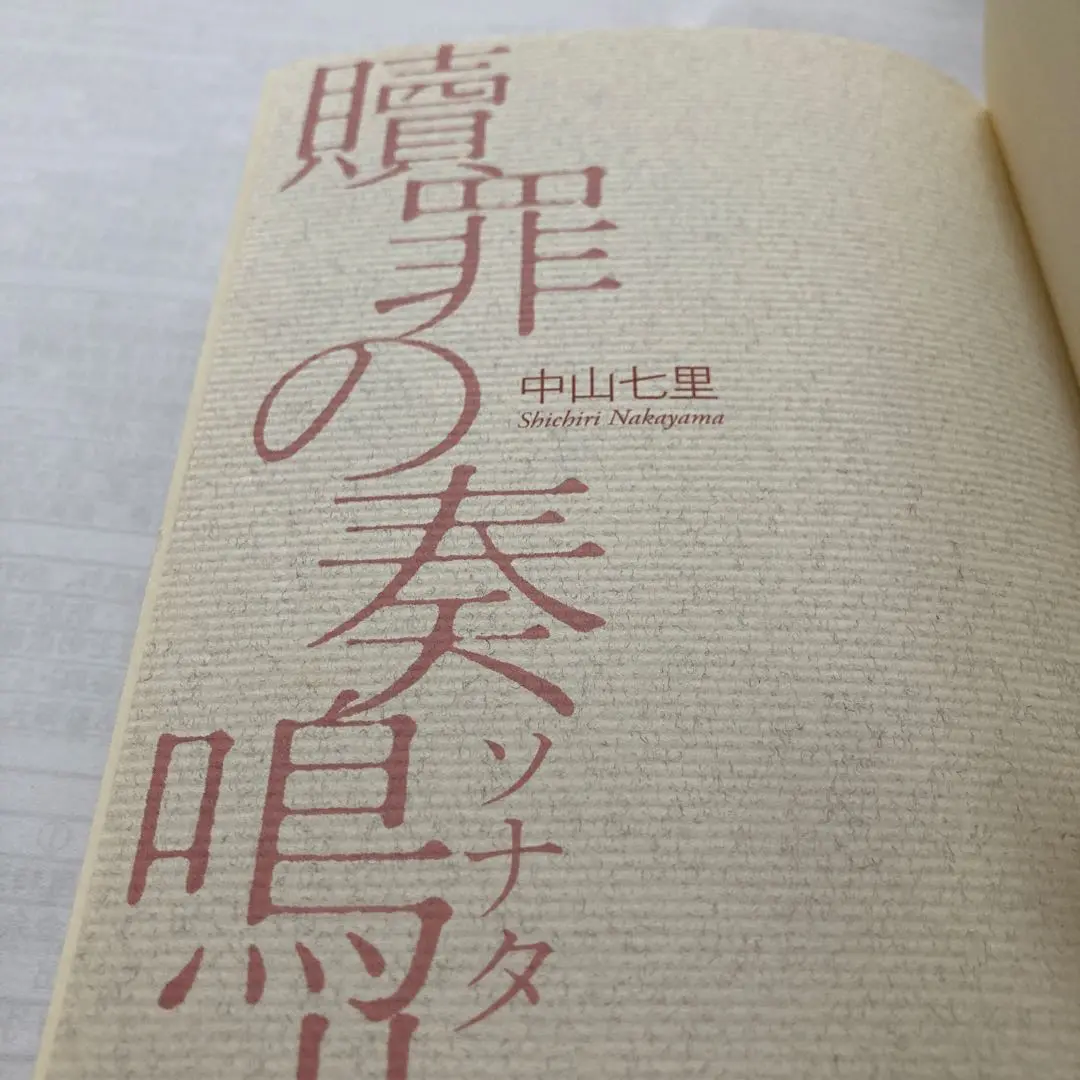 贖罪の奏鳴
ソナタ
中山七里
Shichiri Nakayama